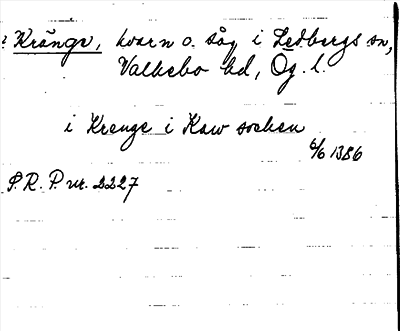 ? Kränge, kvarn o. såg i Ledbergs sn,
Valkebo hd, Ög. l.
i Krenge i Kaw sochen
6/6 1386
S. R. P. nr. 2227